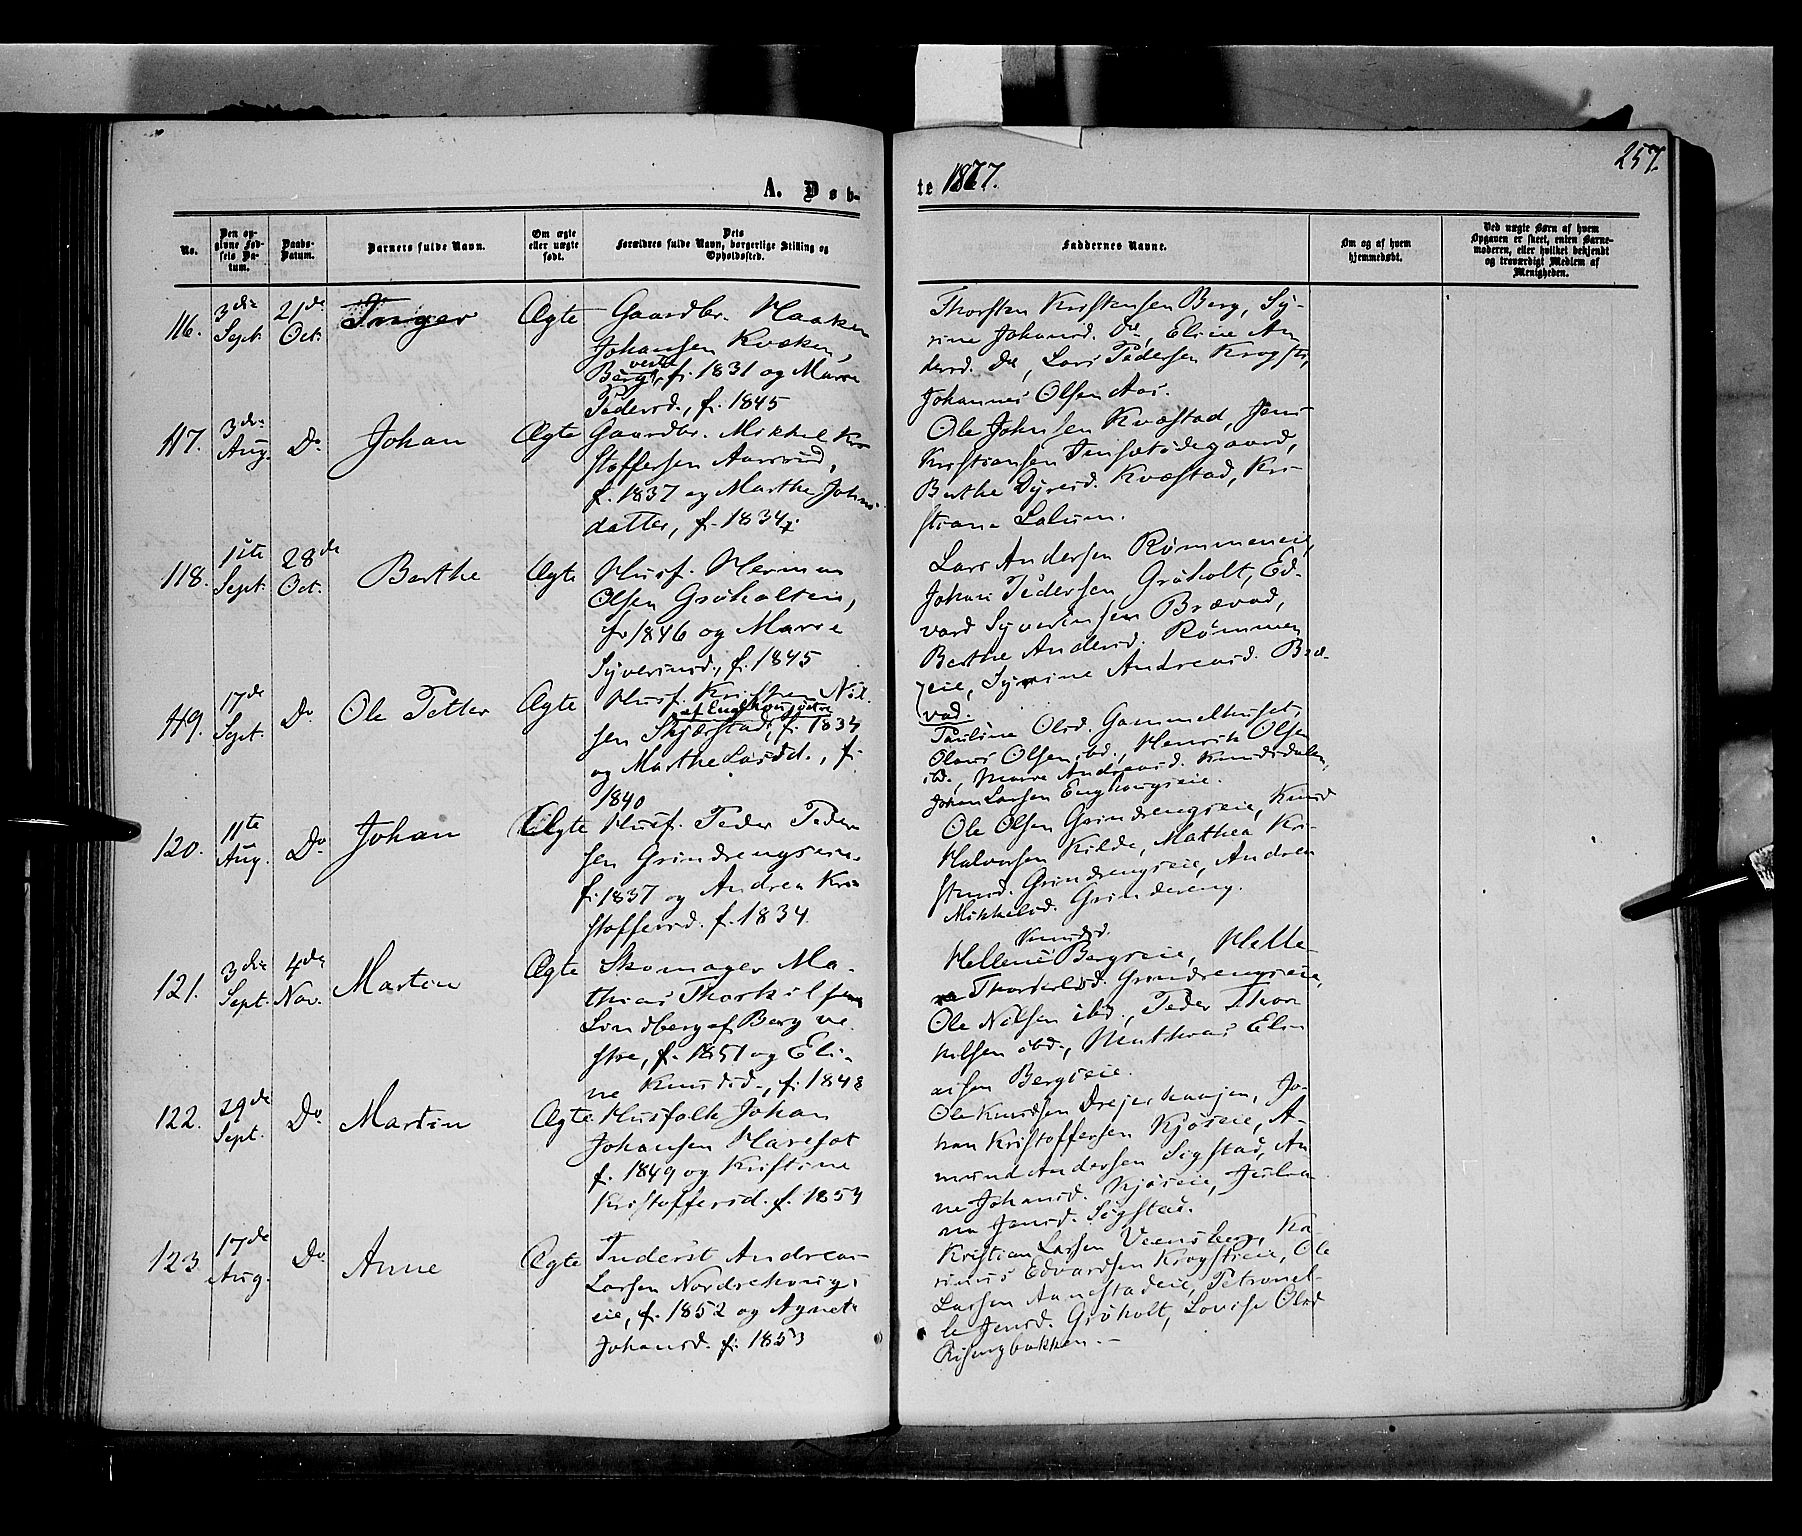 257.
A. Døb-
te 1877.
No.
Den op-
givne Fød-
sels Da-
tum.
Daabs-
Datum.
Barnets fulde Navn.
Om ægte
eller uægte
født.
Dets
Forældres fulde Navn, borgerlige Stilling og
Opholdssted.
Faddernes Navne.
Om og af hvem
hjemmedøbt.
Ved uægte Børn af hvem
Opgaven er skeet, enten Barne-
moderen, eller hvilket bekjendt
og troværdigt Medlem af
Menigheden.
116.
3die
Sept.
21de
Oct.
Inger
Ægte
Gaardbr. Haaken
Johansen Kvæken,
vestre
Berg, f. 1831 og Marre
Pedersd., f. 1845
Thorsten Kristensen Berg, Sy-
rine Johansd. Do, Eline An-
dersd. Do, Lars Pedersen Krogsti,
Johannes Olsen Aas.
117.
3die
Aug.
Do
Johan
Ægte
Gaardbr. Mikkel Kri-
stoffersen Aasrud,
f. 1837 og Marthe Johns-
datter, f. 1834
Ole Johnsen Kvæstad, Jens
Kristiansen Finsetødegaard,
Berthe Dyresd. Kvæstad, Kri-
stiane Lalum.
118.
1ste
Sept.
28de
Oct.
Berthe
Ægte
Husf. Herman
Olsen Grøholteie,
f. 1846 og Marre
Syverinsd., f. 1845
Lars Andersen Rømmeneie,
Johan Pedersen Grøholt, Ed-
vard Syverinsen Brævad,
Berthe Andersd. Rømmen
eie, Syrine Andreasd. Bræ-
vad.
119.
17de
Sept.
Do
Ole Petter
Ægte
Husf. Kristen Nil-
af Enghoug østre
sen Skjærstad, f. 1834
og Marthe Larsd., f.
1840
Pauline Olsd. Gammelhuset,
Olaus Olsen ibd., Henrik Olsen
ibd., Marre Andreasd. Knudsdalen,
Johan Larsen Enghougseie.
120.
11te
Aug.
Do
Johan
Ægte
Husf. Peder Peder-
sen Grindrengseie
f. 1837 og Andrea Kri-
stoffersd. f. 1834.
Ole Olsen Grindrengseie, Knud
Halvorsen Kilde, Mathea Kri-
stensd. Grindrengseie, Andrea
Mikkelsd. Grindereng.
121.
3die
Sept.
4de
Nov.
Martin
Ægte
Skomager Ma-
thias Thorkilsen
Lindberg af Berg ve-
stre, f. 1851 og Eli-
ne Knudsd., f. 1848
Knudsd.
Hellene Bergseie, Helle-
ne Thorkelsd. Grindrengseie,
Ole Nilsen ibd., Peder Thor
kilsen ibd., Mathias Eli-
assen Bergseie.
122.
29de
Sept.
Do
Martin
Ægte
Husfolk Johan
Johansen Haresæt
f. 1849 og Kristine
Kristoffersd. f. 1854
Ole Knudsen Drejerhaugen, Jo-
han Kristoffersen Kjøseie, A-
mund Andersen Sigstad, An-
ne Johansd. Kjøseie, Julia-
na Jensd. Sigstad.
123
17de
Aug.
Do
Anne
Ægte
Inderst Andreas
Larsen Nordrehougs-
eie, f. 1852 og Agnete
Johansd. f. 1853
Kristian Larsen Veensberg, Ka-
rinus Edvardsen Krogstieie, Ole
Larsen Aanestadeie, Petronel-
le Jensd. Grøholt, Lovise Olsd
Risingbakken.